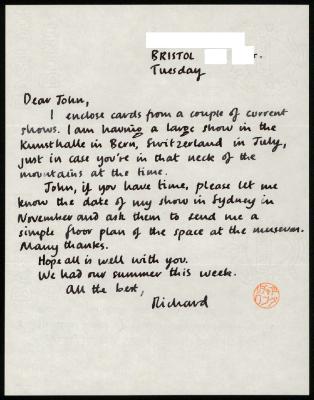 BRISTOL
Tuesday
Dear John,
I enclose cards from a couple of current
shows. I am having a large show in the
Kunsthalle in Bern, Switzerland in July,
just in case you're in that neck of the
mountains at the time.
John, if you have time, please let me
know the date of my show in Sydney in
November and ask them to send me a
simple floor plan of the space at the museum.
Many thanks.
Hope all is well with you.
We had our summer this week.
All the best,
Richard